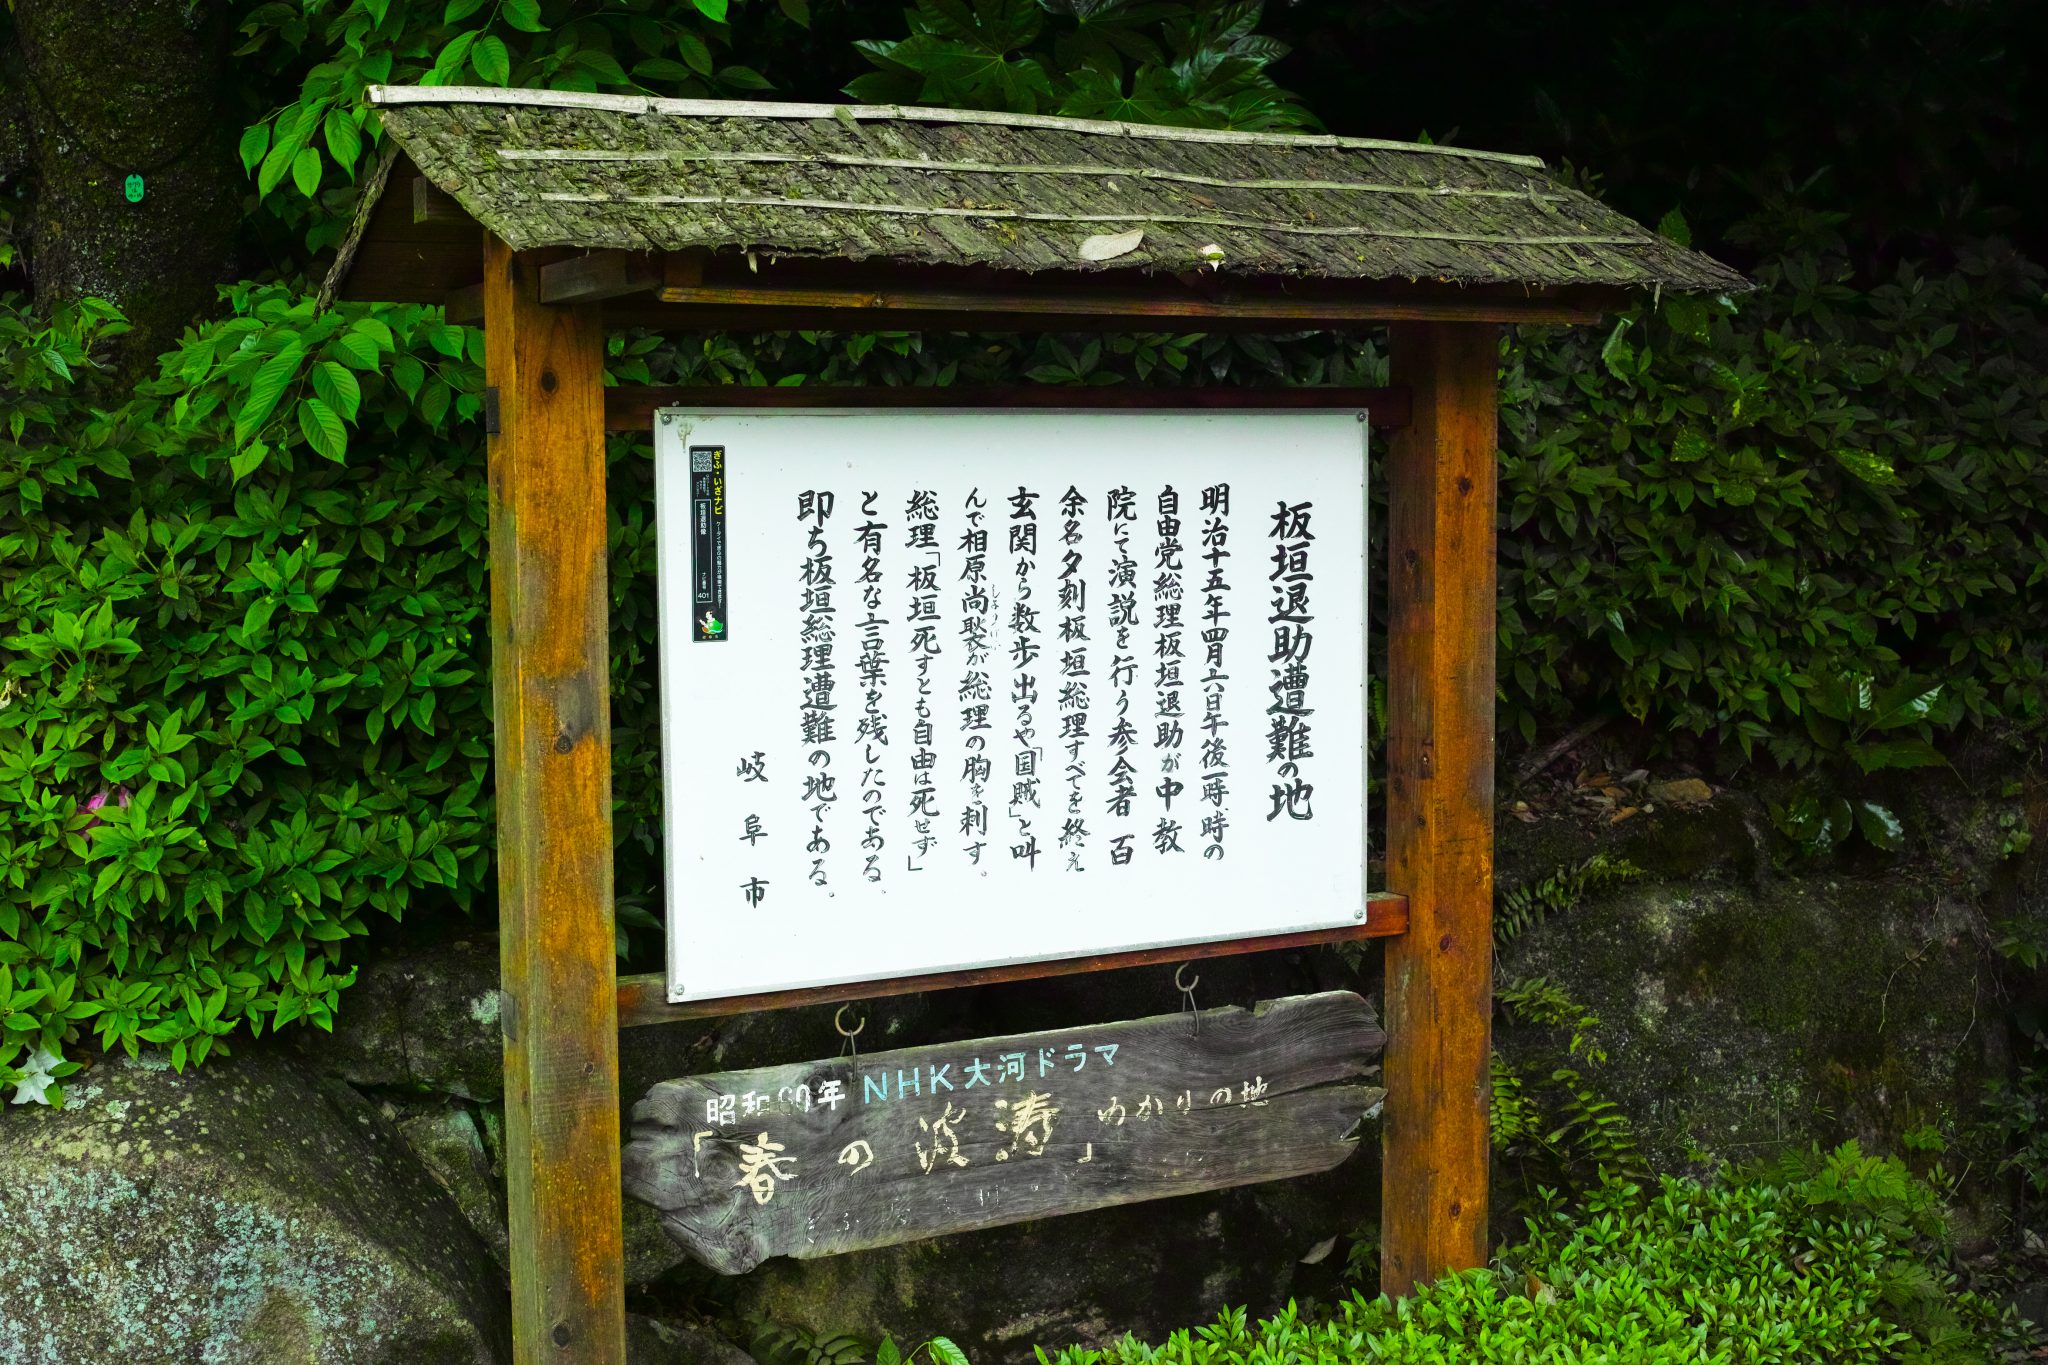 板垣退助遭難の地
明治十五年四月六日午後一時、時の
自由党総理板垣退助が中教
院にて演説を行う参会者 百
余名夕刻板垣総理すべてを終え
玄関から数歩出るや「国賊」と叫
んで相原尚褧が総理の胸を刺す。
総理「板垣死すとも自由は死せず」
と有名な言葉を残したのである。
即ち板垣総理遭難の地である。
岐阜市
ぎふ・いざナビ
板垣退助像
401
昭和60年 NHK大河ドラマ
「春の波涛」ゆかりの地